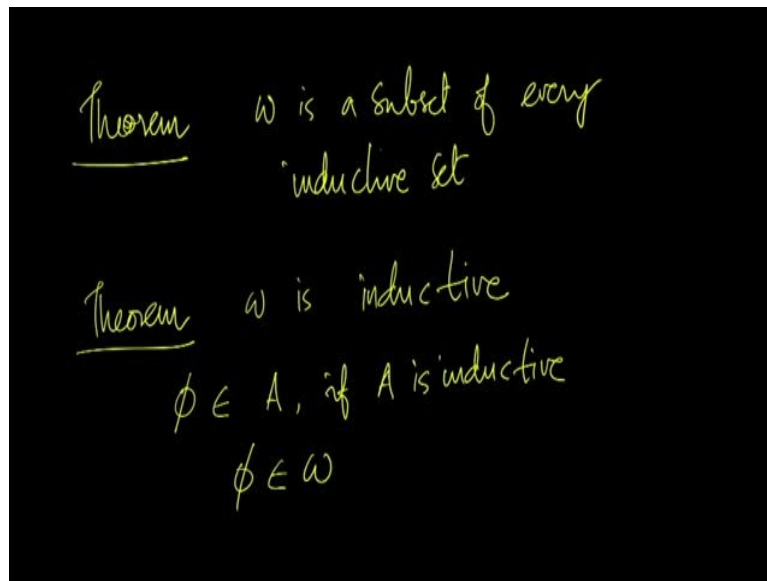 Theorem ω is a subset of every
inductive set
Theorem ω is inductive
ϕ ∈ A, if A is inductive
ϕ ∈ ω